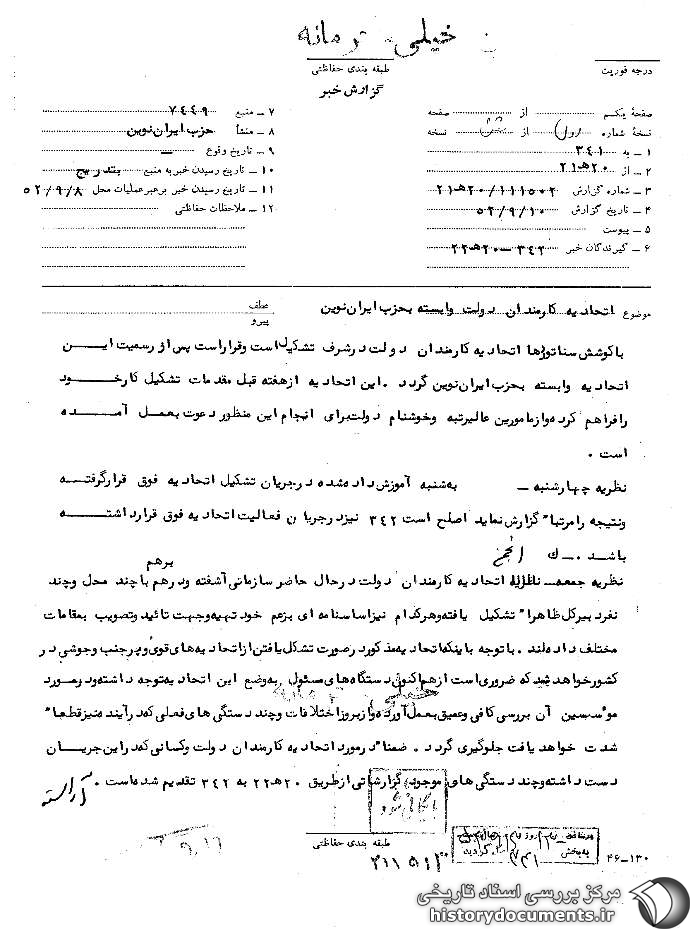 خیلی محرمانه
طبقه بندی حفاظتی
گزارش خبر
درجه فوریت
صفحه یکم از صفحه
نسخهٔ شماره اول از شش نسخه
۱ ــ به ۳۴۱
۲ ــ از ۲۰هـ۲۱
۳ ــ شماره گزارش ۲۱هـ۲۰/۱۱۱۵۰۲
۴ ــ تاریخ گزارش ۵۲/۹/۱۰
۵ ــ پیوست
۶ ــ گیرندگان خبر ۳۴۲ ــ ۲۰هـ۲۲
۷ ــ منبع ۷۴۴۹
۸ ــ منشأ حزب ایران نوین
۹ ــ تاریخ وقوع ــ
۱۰ ــ تاریخ رسیدن خبر به منبع بتدریج
۱۱ ــ تاریخ رسیدن خبر برهبر عملیات محل ۵۲/۹/۸
۱۲ ــ ملاحظات حفاظتی
موضوع اتحادیه کارمندان دولت وابسته بحزب ایران نوین
عطف
پیرو
باکوشش سناتورها اتحادیه کارمندان دولت در شرف تشکیل است و قرار است پس از رسمیت این
اتحادیه وابسته بحزب ایران نوین گردد . این اتحادیه از هفته قبل مقدمات تشکیل کار خود
را فراهم کرده و از مامورین عالیرتبه و خوشنام دولت برای انجام این منظور دعوت بعمل آمده
است .
نظریه چهارشنبه ــ به شنبه آموزش داده شده در جریان تشکیل اتحادیه فوق قرار گرفته
و نتیجه را مرتبا" گزارش نماید اصلح است ۳۴۲ نیز در جریان فعالیت اتحادیه فوق قرار داشته
باشد .ــ ك
نظریه جمعه ــ اتحادیه کارمندان دولت در حال حاضر سازمانی آشفته و درهم برهم با چند محل و چند
نفر دبیر کل ظاهرا" تشکیل یافته و هر کدام نیز اساسنامه ای بزعم خود تهیه و جهت تائید و تصویب بمقامات
مختلف داده اند . با توجه باینکه اتحادیه مذکور در صورت تشکل یافتن از اتحادیه های قوی و پر جنب و جوشی در
کشور خواهد شد که ضروری است از هم اکنون دستگاه های مسئول بوضع این اتحادیه توجه داشته و در مورد
مؤسسین آن بررسی کافی و عمیق بعمل آورده و از بروز اختلافات و چند دستگی های فعلی که در آینده نیز قطعا"
شدت خواهد یافت جلوگیری گردد . ضمنا" در مورد اتحادیه کارمندان دولت و کسانی که در این جریان
دست داشته و چند دستگی های موجود گزارشاتی از طریق ۲۰هـ۲۲ به ۳۴۲ تقدیم شده است . آراسته
بایگانی شود
خیلی محرمانه
طبقه بندی حفاظتی
۴۶ــ۱۳۰
مرکز بررسی اسناد تاریخی
historydocuments.ir